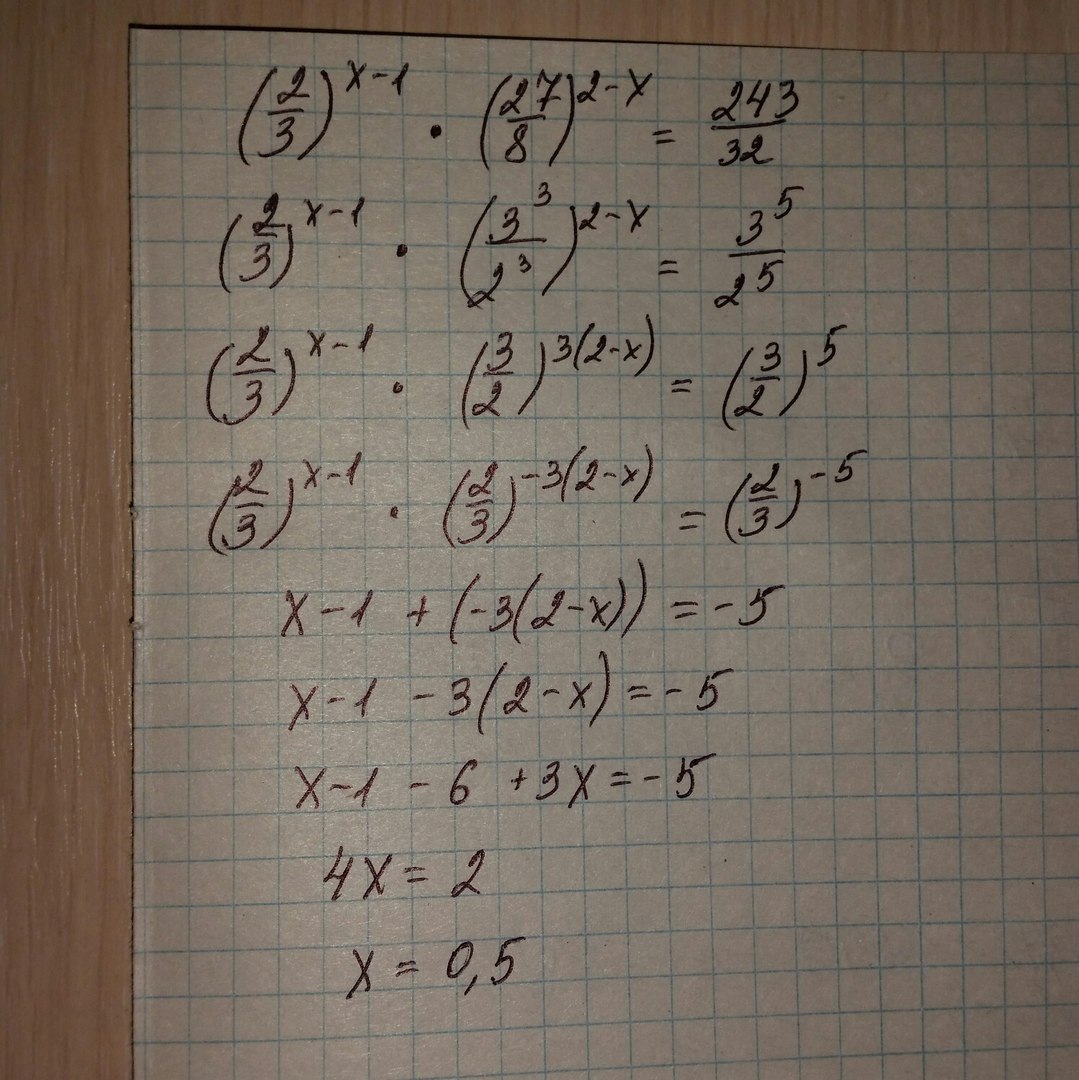 (2/3)^(x-1) · (27/8)^(2-x) = 243/32
(2/3)^(x-1) · (3^3/2^3)^(2-x) = 3^5/2^5
(2/3)^(x-1) · (3/2)^(3(2-x)) = (3/2)^5
(2/3)^(x-1) · (2/3)^(-3(2-x)) = (2/3)^(-5)
x-1 + (-3(2-x)) = -5
x-1 - 3(2-x) = -5
x-1 - 6 + 3x = -5
4x = 2
x = 0,5